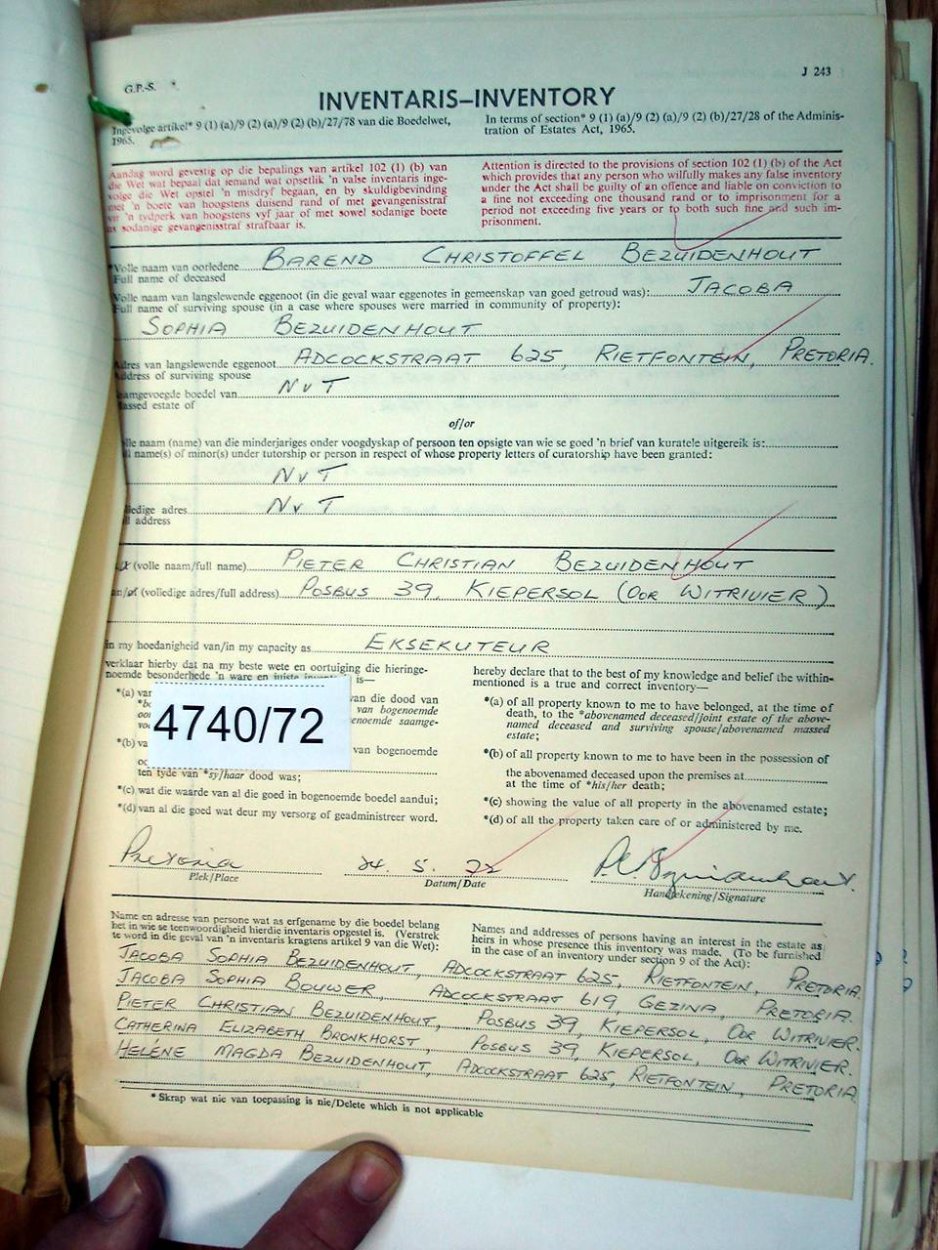 G.P.-S.
J 243
INVENTARIS–INVENTORY
Ingevolge artikel* 9 (1) (a)/9 (2) (a)/9 (2) (b)/27/78 van die Boedelwet,
1965.
In terms of section* 9 (1) (a)/9 (2) (a)/9 (2) (b)/27/28 of the Adminis-
tration of Estates Act, 1965.
Aandag word gevestig op die bepalings van artikel 102 (1) (b) van
die Wet wat bepaal dat iemand wat opsetlik 'n valse inventaris inge-
volge die Wet opstel 'n misdryf begaan, en by skuldigbevinding
met 'n boete van hoogstens duisend rand of met gevangenisstraf
vir 'n tydperk van hoogstens vyf jaar of met sowel sodanige boete
as sodanige gevangenisstraf strafbaar is.
Attention is directed to the provisions of section 102 (1) (b) of the Act
which provides that any person who wilfully makes any false inventory
under the Act shall be guilty of an offence and liable on conviction to
a fine not exceeding one thousand rand or to imprisonment for a
period not exceeding five years or to both such fine and such im-
prisonment.
*Volle naam van oorledene BAREND CHRISTOFFEL BEZUIDENHOUT
Full name of deceased
Volle naam van langslewende eggenoot (in die geval waar eggenotes in gemeenskap van goed getroud was): JACOBA
Full name of surviving spouse (in a case where spouses were married in community of property):
SOPHIA BEZUIDENHOUT
Adres van langslewende eggenoot ADCOCKSTRAAT 625, RIETFONTEIN, PRETORIA.
Address of surviving spouse
saamgevoegde boedel van NvT
massed estate of
of/or
lle naam (name) van die minderjariges onder voogdyskap of persoon ten opsigte van wie se goed 'n brief van kuratele uitgereik is:
ll name(s) of minor(s) under tutorship or person in respect of whose property letters of curatorship have been granted:
NvT
lledige adres NvT
ll address
(volle naam/full name) PIETER CHRISTIAN BEZUIDENHOUT
an/of (volledige adres/full address) POSBUS 39, KIEPERSOL (OOR WITRIVIER)
in my hoedanigheid van/in my capacity as EKSEKUTEUR
verklaar hierby dat na my beste wete en oortuiging die hieringe-
noemde besonderhede 'n ware en juiste is—
*(a) van
van die dood van
van bogenoemde
enoemde saamge-
*(b) va
van bogenoemde
4740/72
ten tyde van *sy/haar dood was;
*(c) wat die waarde van al die goed in bogenoemde boedel aandui;
*(d) van al die goed wat deur my versorg of geadministreer word.
hereby declare that to the best of my knowledge and belief the within-
mentioned is a true and correct inventory—
*(a) of all property known to me to have belonged, at the time of
death, to the *abovenamed deceased/joint estate of the above-
named deceased and surviving spouse/abovenamed massed
estate;
*(b) of all property known to me to have been in the possession of
the abovenamed deceased upon the premises at
at the time of *his/her death;
*(c) showing the value of all property in the abovenamed estate;
*(d) of all the property taken care of or administered by me.
Pretoria 24. 5. 72 P.C. Bezuidenhout.
Plek/Place Datum/Date Handtekening/Signature
Name en adresse van persone wat as erfgename by die boedel belang
het in wie se teenwoordigheid hierdie inventaris opgestel is. (Verstrek
te word in die geval van 'n inventaris kragtens artikel 9 van die Wet):
Names and addresses of persons having an interest in the estate as
heirs in whose presence this inventory was made. (To be furnished
in the case of an inventory under section 9 of the Act):
JACOBA SOPHIA BEZUIDENHOUT, ADCOCKSTRAAT 625, RIETFONTEIN, PRETORIA.
JACOBA SOPHIA BOUWER, ADCOCKSTRAAT 619 GEZINA, PRETORIA.
PIETER CHRISTIAN BEZUIDENHOUT, POSBUS 39, KIEPERSOL, OOR WITRIVIER.
CATHERINA ELIZABETH BRONKHORST, POSBUS 39, KIEPERSOL, OOR WITRIVIER.
HELÉNE MAGDA BEZUIDENHOUT, ADCOCKSTRAAT 625, RIETFONTEIN, PRETORIA
* Skrap wat nie van toepassing is nie/Delete which is not applicable